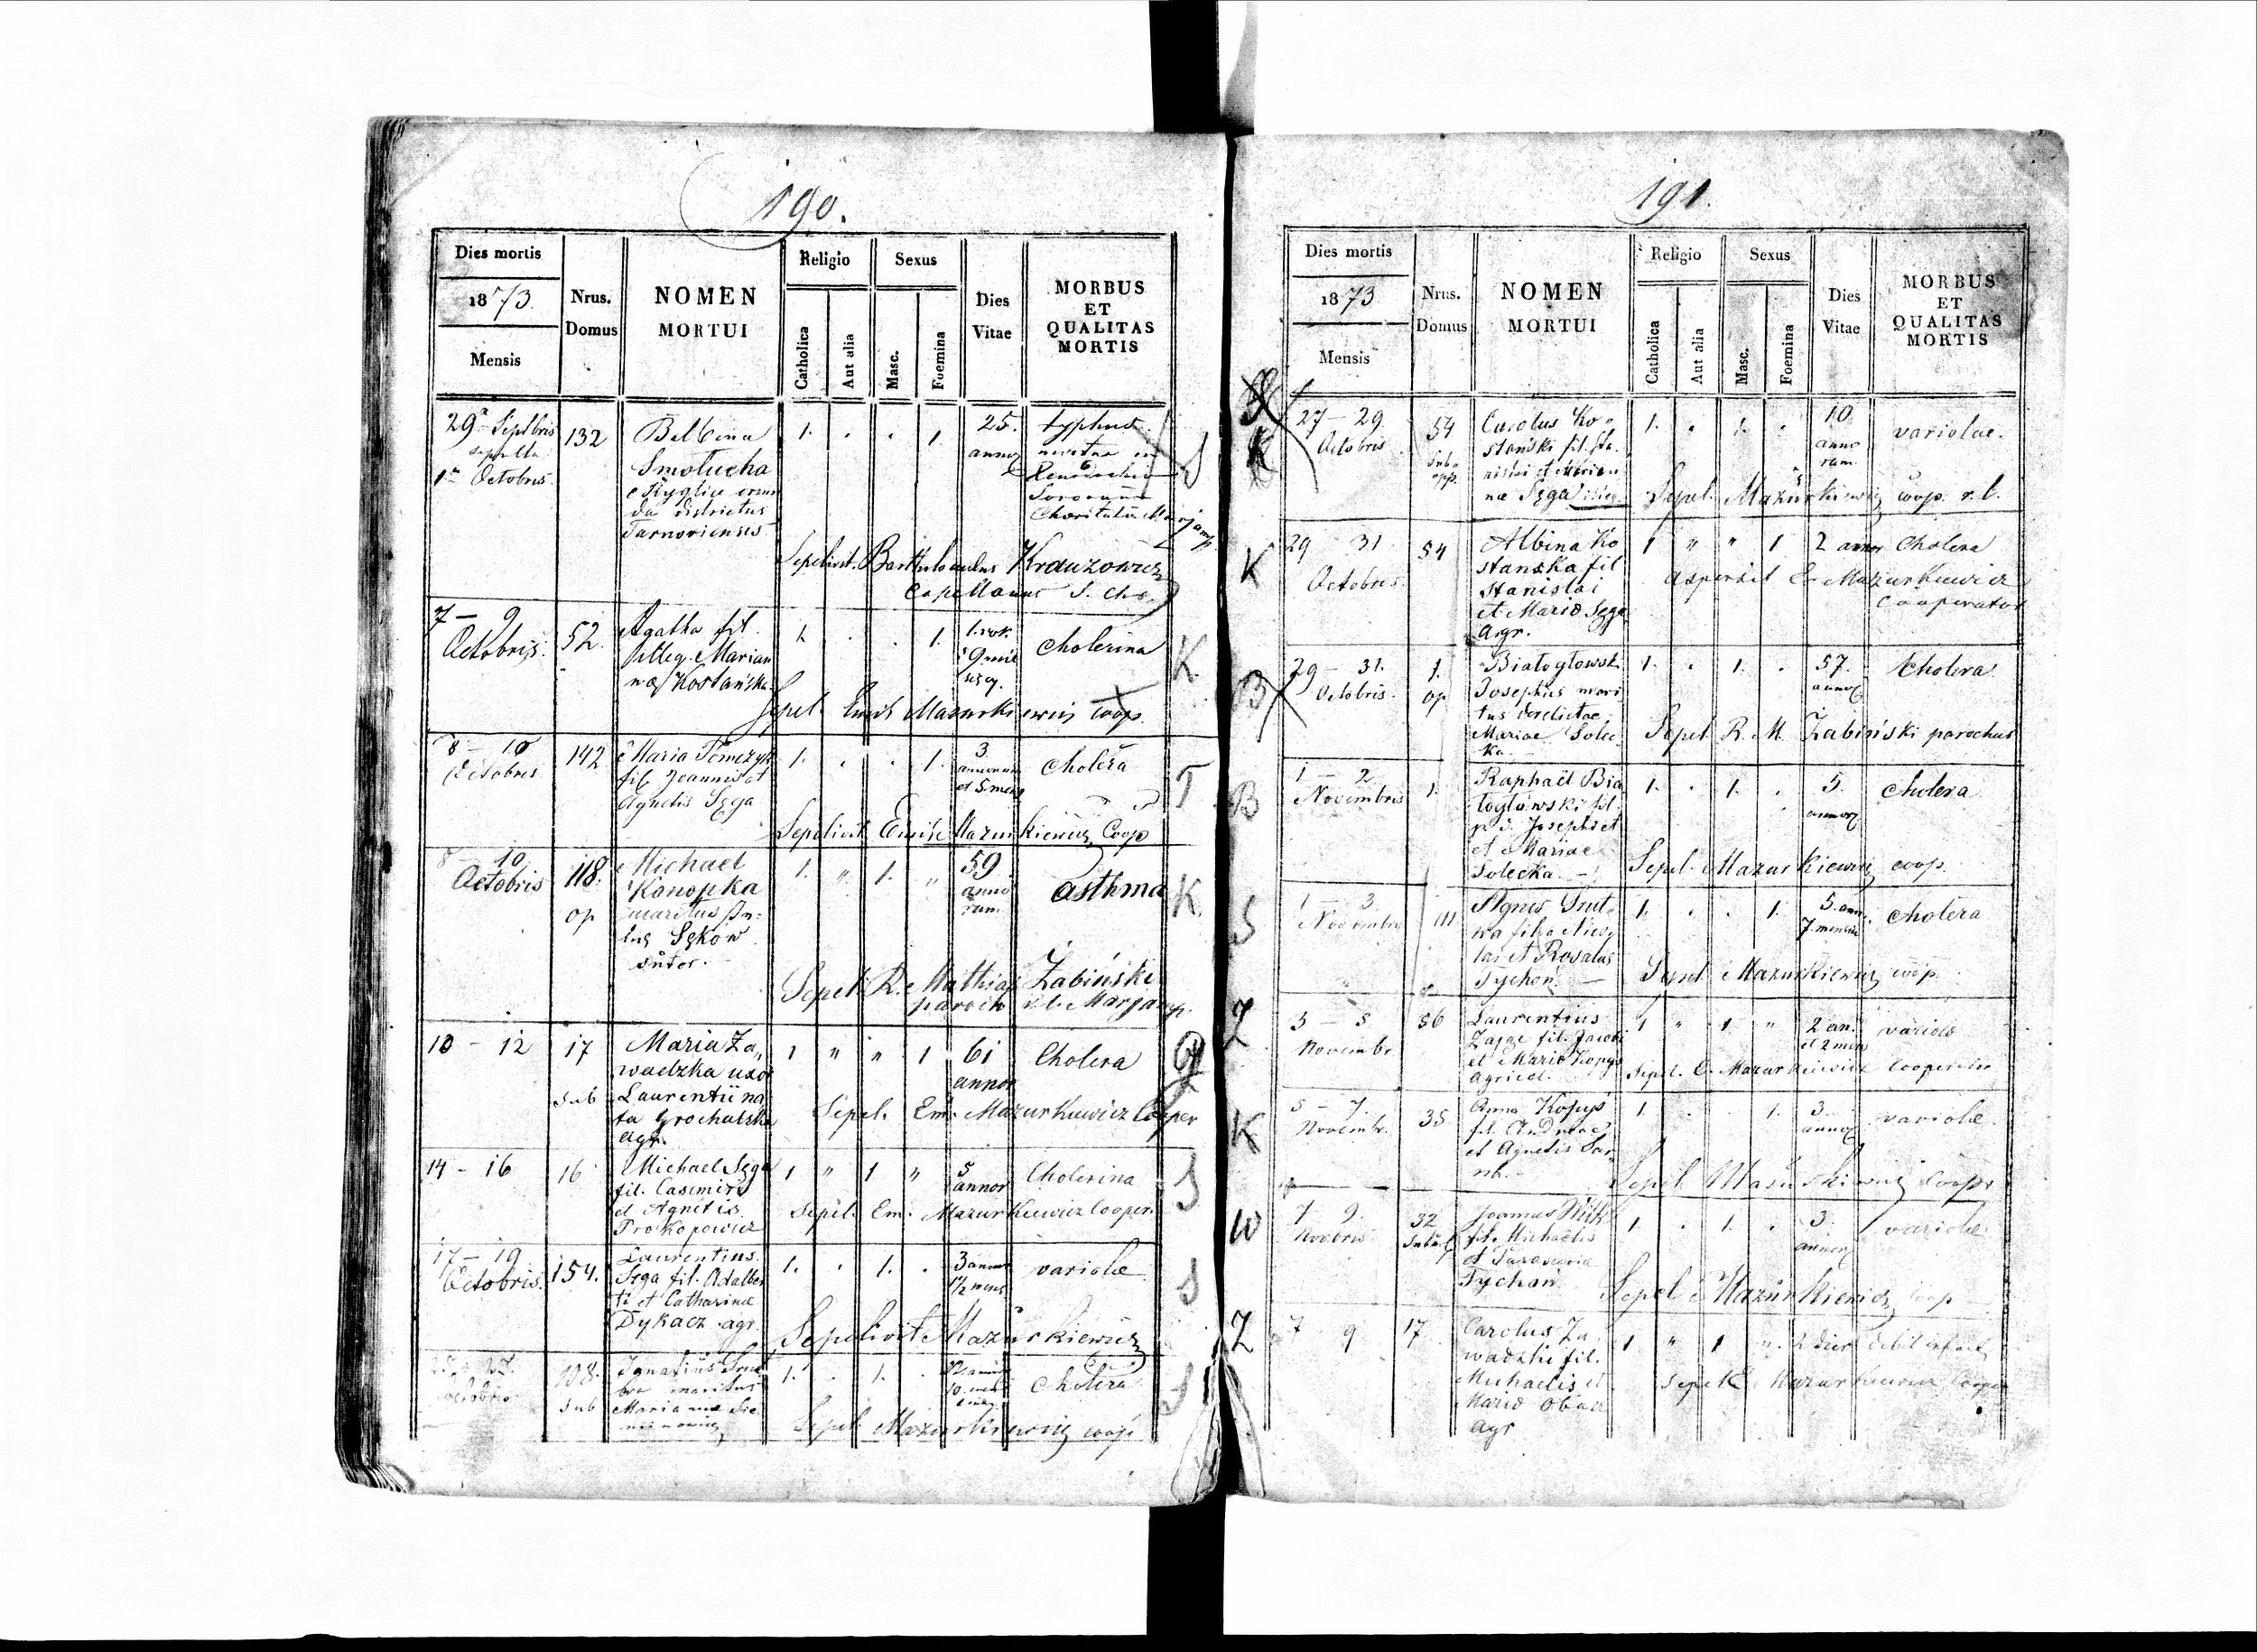 190.
Dies mortis
1873.
Mensis
Nrus.
Domus
NOMEN
MORTUI
Religio
Catholica
Aut alia
Sexus
Masc.
Foemina
Dies
Vitae
MORBUS
ET
QUALITAS
MORTIS
29 Septbris
sepulta
1 Octobris
132
Balbina
Smołucha
da districtus
Tarnoviensis
1.
1.
25.
typhus
Sororum
Sepelivit Bartholomaeus Krauzowicz
Capellanus S. Ch.
S
7 – 9
Octobris.
52.
Agatha fil.
illeg. Marian
næ Kostańska
1.
1.
cholerina
Sepel. Emil Mazurkiewicz coop.
K.
8 – 10
Octobris
142
Maria Tomczyk
fil. Joannis et
Agnetis Sęga
1.
1.
3
annorum
et 5 mens
cholera
Sepelivit Emil Mazurkiewicz Coop
T
8 – 10
Octobris
118.
op
Michael
Konopka
maritus
Sęków
sutor.
1.
"
1.
"
59
anno
rum.
asthma
Sepel. R. Mathias Żabiński
paroch r. l. Marjamp.
K.
10 – 12
17
sub
Maria Za„
wadzka uxor
Laurentii na
ta Grochalska
agr.
1
"
"
1
61
annor
Cholera
Sepel. Em. Mazurkiewicz Cooper
14 – 16
16
Michael Sęga
fil. Casimiri
et Agnetis
Prokopowicz
1
"
1
"
5
annor
Cholerina
Sepel. Em. Mazurkiewicz Cooper.
S
17 – 19
Octobris.
154.
Laurentius
Sęga fil. Adalber
ti et Catharinæ
Dykacz agr.
1.
1.
variolæ
Sepelivit Mazurkiewicz
S
Octobris
108.
sub
Ignatius
maritus
Mariannæ
1.
1.
cholera
Sepel Mazurkiewicz coop
S
191.
Dies mortis
1873
Mensis
Nrus.
Domus
NOMEN
MORTUI
Religio
Catholica
Aut alia
Sexus
Masc.
Foemina
Dies
Vitae
MORBUS
ET
QUALITAS
MORTIS
K
27 – 29
Octobris
54
Carolus Ko-
stański fil. Sta-
nislai et Marian
næ Sęga
1.
1.
10
anno
rum.
variolae.
Sepel. Mazurkiewicz coop. r. l.
K
29 31
Octobris.
54
Albina Ko
stańska fil
Stanislai
et Mariæ Sęga
agr.
1
"
"
1
2 annor
Cholera
aspersit E. Mazurkiewicz
Cooperator
B
29 – 31.
Octobris.
1.
op
Białogłowski
Josephus mari
tus derelictae
Mariae Solec
ka.
1.
1.
57.
cholera
Sepel R. M. Żabiński parochus
B
1 – 2
Novembris
1.
Raphael Bia
łogłowski fil
p. d. Josephi et
et Mariae
Solecka. –
1.
1.
5.
annor
cholera
Sepel. Mazurkiewicz coop.
S
1 – 3
Novembris
111
Agnes
et Rosalia
Tychoń. –
1.
1.
5. ann.
7. mensiu
cholera
Sepel Mazurkiewicz coop.
Z
3 – 5
Novembr
56
Laurentius
Zając fil. Jacobi
et Mariæ Kopyś
agricol.
1
"
1
"
2 an.
et 2 men
variolæ
Sepel. E. Mazurkiewicz Cooperator
K
5 – 7.
Novembr.
35
Anna Kopyś
fil. Andreæ
et Agnetis
1.
1.
3.
variolæ
Sepel Mazurkiewicz Coop
W
7 9.
Novbris
32
Joannes
fil. Michaelis
et
Tychoń
1.
1.
3.
variolæ
Sepel Mazurkiewicz coop
Z
7 9
17
Carolus Za
wadzki fil.
Michaelis et
Mariæ
agr
1
"
1
"
2 dier
debil infant
Sepel E Mazurkiewicz Cooper